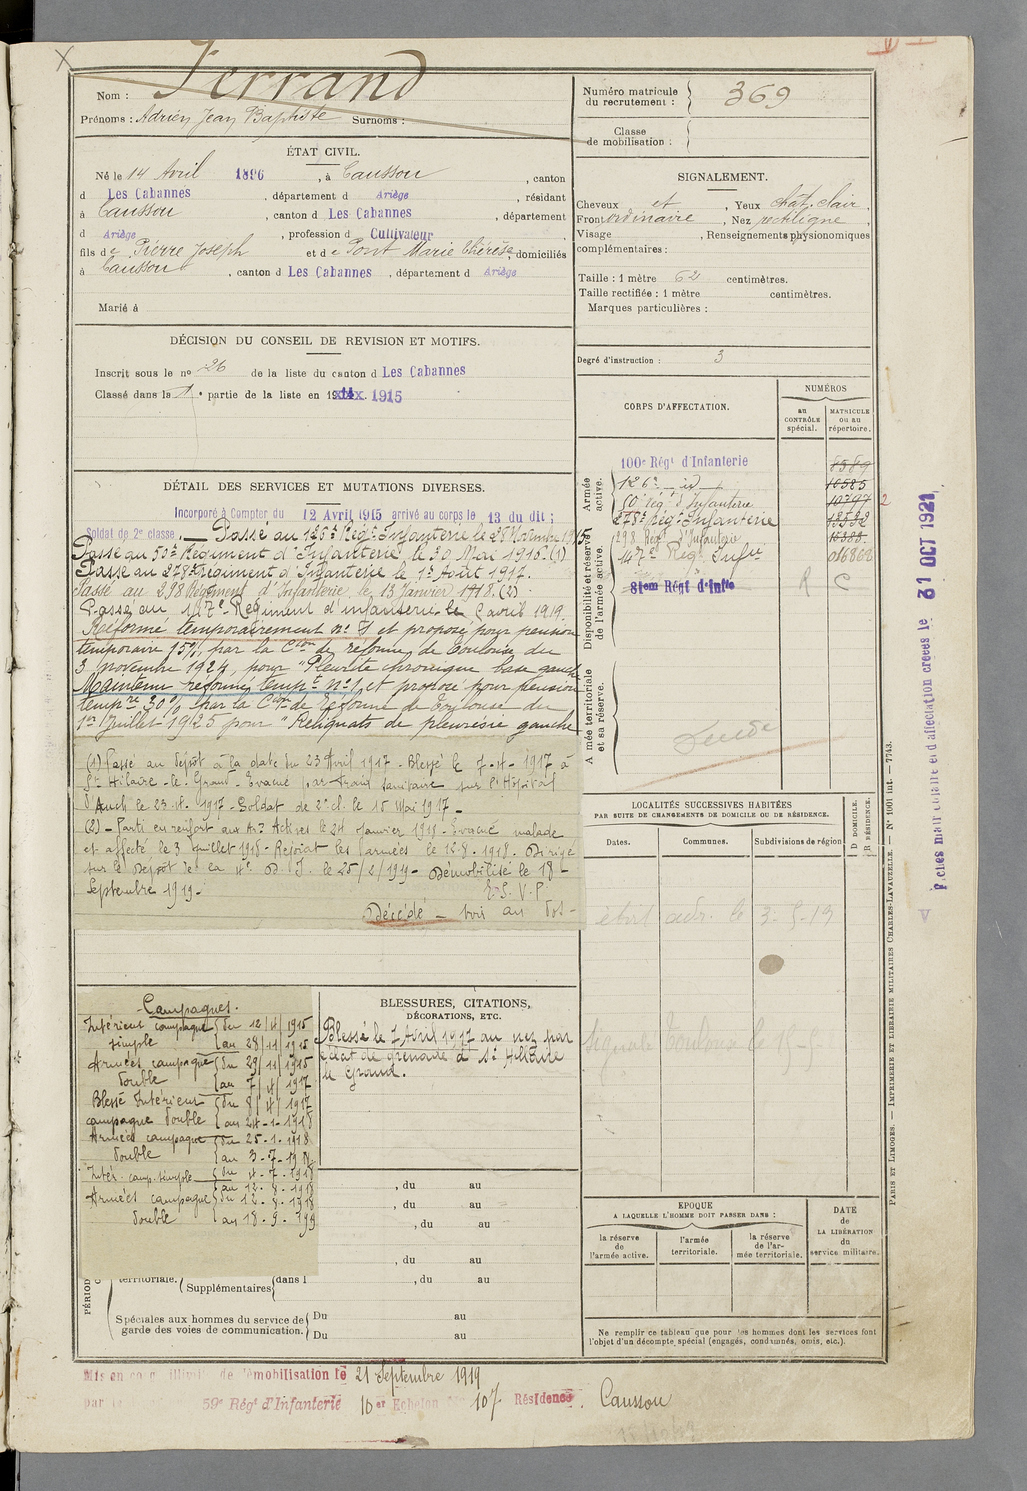 Ferrand
Nom :
Prénoms : Adrien Jean Baptiste Surnoms :
Numéro matricule du recrutement : 369
Classe de mobilisation :
ÉTAT CIVIL.
Né le 14 Avril 1896, à Caussou, canton
d Les Cabannes, département d Ariège, résidant
à Caussou, canton d Les Cabannes, département
d Ariège, profession d Cultivateur
fils de Pierre Joseph et de Pont Marie Thérèse, domiciliés
à Caussou, canton d Les Cabannes, département d Ariège
Marié à
SIGNALEMENT.
Cheveux et, Yeux chat. clair,
Front ordinaire, Nez rectiligne
Visage, Renseignements physionomiques
complémentaires :
Taille : 1 mètre 62 centimètres.
Taille rectifiée : 1 mètre centimètres.
Marques particulières :
Degré d'instruction : 3
DÉCISION DU CONSEIL DE REVISION ET MOTIFS.
Inscrit sous le no 26 de la liste du canton d Les Cabannes
Classé dans la 1re partie de la liste en 1915
DÉTAIL DES SERVICES ET MUTATIONS DIVERSES.
Incorporé à Compter du 12 Avril 1915 arrivé au corps le 13 du dit ;
Soldat de 2e classe. — Passé au 126e Rég.t Infanterie le 28 Novembre 1915
Passé au 50e Régiment d'Infanterie le 30 Mai 1916. (1)
Passé au 278e Régiment d'Infanterie le 1er Août 1917.
Passé au 298 Régiment d'Infanterie, le 13 janvier 1918. (2)
Passé au 147e Régiment d'infanterie le 2 avril 1919.
Réformé temporairement no 1 et proposé pour pension
temporaire 15%, par la Cion de réforme de Toulouse du
3 novembre 1924 pour "Pleurite chronique base gauche
Maintenu réformé tempre no 1 et proposé pour pension
tempre 30% par la Cion de réforme de Toulouse du
1er Juillet 1925 pour "Reliquats de pleurésie gauche
(1) Passé au Dépôt à la date du 23 Avril 1917 - Blessé le 7-4-1917 à
St Hilaire-le-Grand - Evacué par train sanitaire sur l'Hôpital
d'Auch le 23-4-1917 - Soldat de 2e cl. le 15 Mai 1917 -
(2) - Parti en renfort aux Ar. Actives le 24 Janvier 1918 - Evacué malade
et affecté le 3 Juillet 1918 - Rejoint les armées le 12-8-1918. Dirigé
sur le Dépôt de la 4e D. I. le 25/2/1919 - Démobilisé le 18
Septembre 1919 -
T.S.V.P.
Décédé - voir au dos -
CORPS D'AFFECTATION.
NUMÉROS
au CONTRÔLE spécial.
MATRICULE ou au répertoire.
Armée active.
Disponibilité et réserve de l'armée active.
Armée territoriale et sa réserve.
100e Régt d'Infanterie 8589
126e — id — 10585
50e Rég. d'Infanterie 10797
278e Rég. Infanterie
298 Rég. d'Infanterie
147e Rég. Infie
81eme Régt d'Infie R C
LOCALITÉS SUCCESSIVES HABITÉES
PAR SUITE DE CHANGEMENTS DE DOMICILE OU DE RÉSIDENCE.
Dates. Communes. Subdivisions de région
D. DOMICILE. R. RÉSIDENCE.
Campagnes.
Intérieur campagne simple du 12/4/1915 au 28/11/1915
Armées campagne double du 29/11/1915 au 7/4/1917
Blessé Intérieur campagne double du 8/4/1917 au 24-1-1918
Armées campagne double du 25-1-1918 au 3-7-1918
Intér. camp. simple du 4-7-1918 au 12-8-1918
Armées campagne double du 12-8-1918 au 18-9-1919
BLESSURES, CITATIONS,
DÉCORATIONS, ETC.
Blessé le 7 Avril 1917 au nez par
éclat de grenade à St Hillaire
le Grand.
, du au
, du au
, du au
, du au
territoriale. Supplémentaires dans l , du au
PÉRIOD
Spéciales aux hommes du service de garde des voies de communication. Du au
Du au
EPOQUE
A LAQUELLE L'HOMME DOIT PASSER DANS :
la réserve de l'armée active.
l'armée territoriale.
la réserve de l'armée territoriale.
DATE de LA LIBÉRATION du service militaire.
Ne remplir ce tableau que pour les hommes dont les services font
l'objet d'un décompte spécial (engagés, condamnés, omis, etc.).
Mis en congé illimité de démobilisation le 21 Septembre 1919
par le 59e Régt d'Infanterie 10er Echelon No 107 Résidence. Caussou
PARIS ET LIMOGES. — IMPRIMERIE ET LIBRAIRIE MILITAIRES CHARLES-LAVAUZELLE. — No 1001 int. — 7743.
Fiches matriculaire et d'affectation créées le 31 OCT 1921